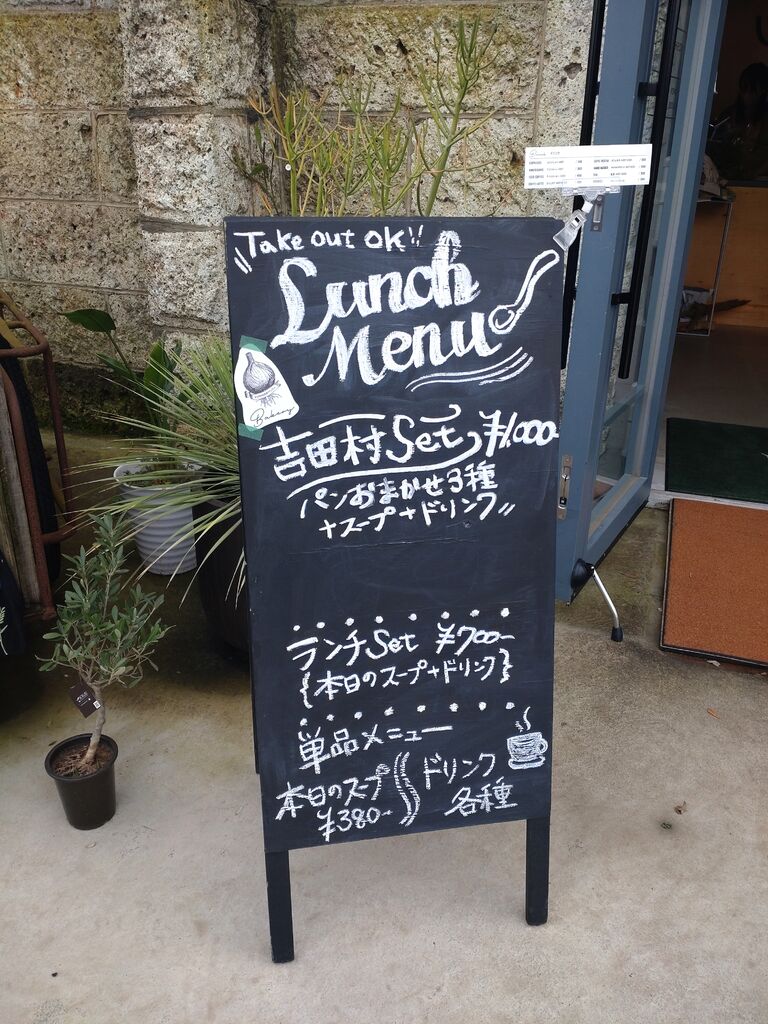 "Take out OK"
Lunch
Menu
Bakery
吉田村Set ¥1,000-
パンおまかせ3種
+スープ+ドリンク
ランチSet ¥700-
{本日のスープ+ドリンク}
単品メニュー
本日のスープ
¥380-
ドリンク
各種